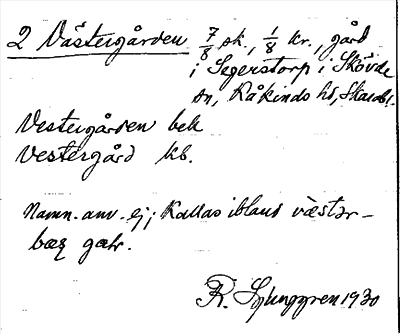 2 Västergården 7/8 sk., 1/8 kr., gård
i Segerstorp i Skövde
sn, Kåkinds hd, Skarabs l.
Vestergården bek
Vestergård kb.
Namn. anv. ej; Kallas ibland västər-
bæȝ gah.
R. Ljunggren 1930